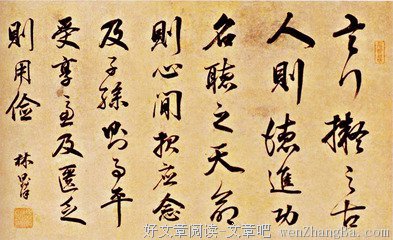 言行擬之古
人則德進功
名聽之天命
則心閒報應念
及子孫則事平
受享慮及匱乏
則用儉
林則徐
好文章阅读-文章吧 wenZhangBa.com